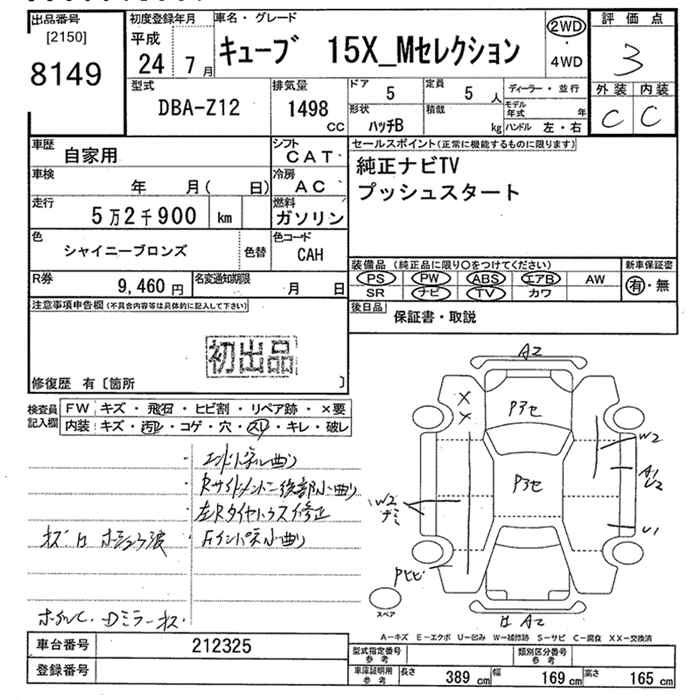 出品番号
[2150]
8149
初度登録年月
平成
24 7月
車名・グレード
キューブ 15X_Mセレクション
2WD
・
4WD
評価点
3
外装 内装
C C
型式
DBA-Z12
排気量
1498
CC
ドア 5
定員 5人
ディーラー・並行
形状
ハッチB
積載
kg
モデル年式 年
ハンドル 左・右
車歴
自家用
シフト
CAT
セールスポイント(正常に機能するものに限ります)
純正ナビTV
プッシュスタート
車検
年 月( 日)
冷房
AC
走行
5万2千900 km
燃料
ガソリン
色
シャイニーブロンズ
色替
色コード
CAH
装備品(純正品に限り○をつけてください)
新車保証書
PS PW ABS エアB AW
SR ナビ TV カワ
有・無
R券
9,460円
名変通知期限
月 日
後日品
保証書・取説
注意事項申告欄(不具合内容等は具体的に記入して下さい)
初出品
修復歴 有〔箇所 〕
検査員記入欄
FW キズ・飛石・ヒビ割・リペア跡・×要
内装 キズ・汚レ・コゲ・穴・スレ・キレ・破レ
A2
X
X
P3セ
P3セ
W2
A1
U2
W2
ナミ
U1
Pサビ
A2
スペア
A-キズ E-エクボ U-凹み W-補修跡 S-サビ C-腐食 XX-交換済
車台番号
212325
登録番号
型式指定番号
参考
類別区分番号
参考
車庫証明用
参考
長さ 389cm
幅 169cm
高さ 165cm